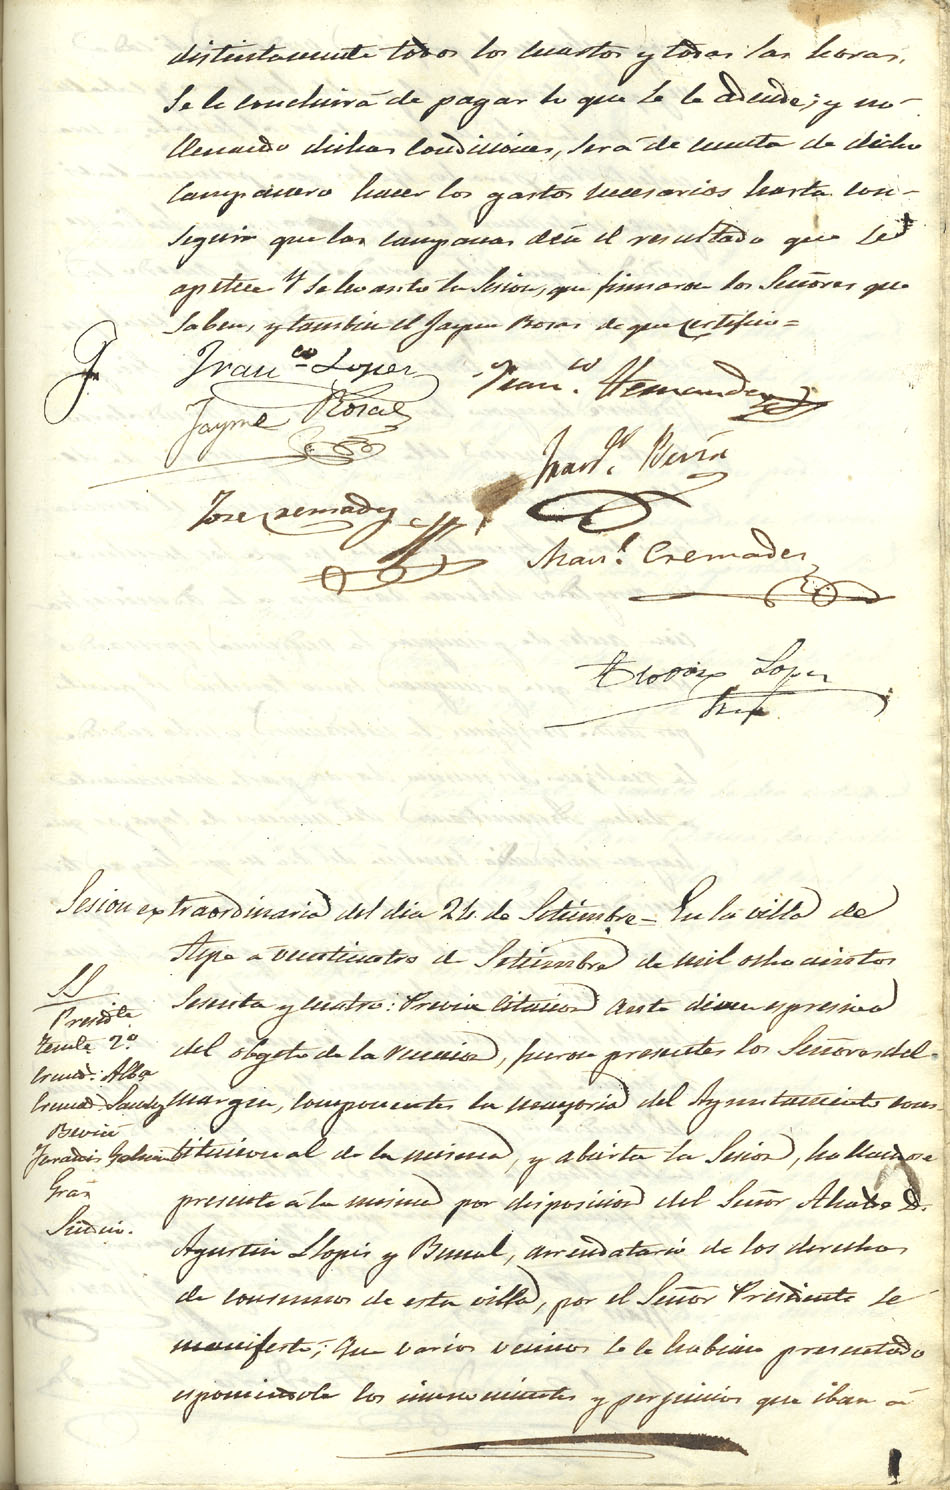 distintamente todos los cuartos y todas las horas,
se le concluirá de pagar lo que se le adeude; y no
llenando dichas condiciones, será de cuenta de dicho
campanero hacer los gastos necesarios hasta con-
seguir que las campanas dén el resultado que se
apetece Y se levantó la sesion, que firmaron los Señores que
saben, y tambien el Jayme Rosas de que certifico=
Franco Lopez
Franco. Hernandez
Jayme Rosas
Franco. Bevía
Jose Cremades
Franco. Cremades
Lopez
Srio
Sesion extraordinaria del dia 24 de Setiembre= En la villa de
Aspe a veinticuatro de Setiembre de mil ochocientos
sesenta y cuatro: Previa citacion ante diem espresiva
del obgeto de la reunion, fueron presentes los Señores del
margen, componentes la mayoria del Ayuntamiento cons
titucional de la misma, y abierta la sesion, hallandose
presente á la misma por disposicion del Señor Alcalde D.
Agustin Llopis y Bernal, arrendatario de los derechos
de consumos de esta villa, por el Señor Presidente se
manifestó; Que varios vecinos se le habian presentado
esponiendole los inconvenientes y perjuicios que iban á
SS
Presidte
Tente 2º
Cremads. Alba
Cremad
Bevia
Gras
Síndico.